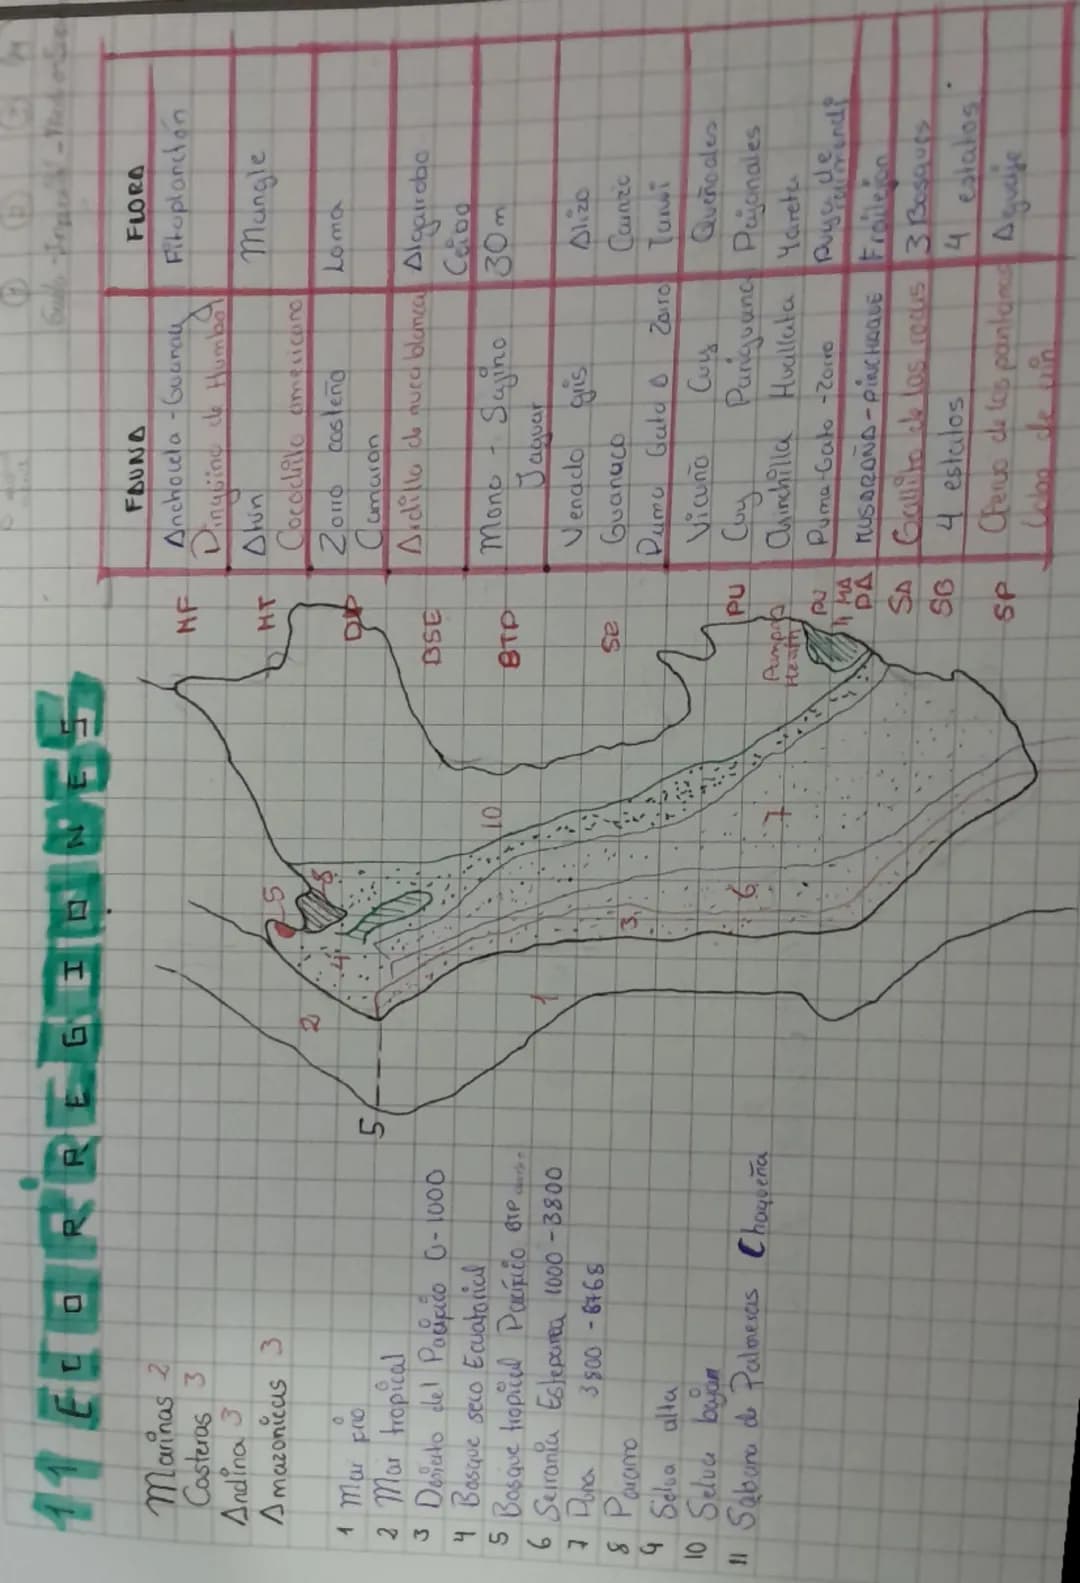 11 ECORREGIONES
Marinas 2
Costeras 3
Andina 3
Amazonicas 3
1 Mar frio
2 Mar tropical
3 Desierto del Pacifico 0-1000
4 Bosque seco Ecuatorial
5 Bosque tropical Pacifico BTP
6 Serrania Esteparea 1000-3800
7 Puna 3800-6768
8 Paramo
9 Selva alta
10 Selva bajam
11 Sabana de Palmeras Chaqueña
5
2
1
4
5
8
3
6
7
10
FAUNA FLORA
MF Anchoveta - Guanay Fitoplanción
Pinguino de Humbolt
MT Atun Mangle
Cocodrilo americano
DP Zorro costeño Loma
Camaron
BSE Ardilla de nuca blanca Algarrobo
Ceibo
BTP Mono - Sajino 30m
Jaguar
SE Venado gris Aliso
Guanaco Carrizo
Puma Gato A Zorro Tanvi
PU Vicuña Cuy Queñoales
Cuy Pariguana Pajonales
Pampas Heath Chinchilla Huallata Yareta
PU Puma-Gato-Zorro Puya de Raimondi
PA MUSARAÑA-PINCHAQUE Frailejon
SA Gallito de las rocas 3 Bosques
SB 4 estatos 4 estatos
SP Ciervo de los pantanos Aguaje
Lobo de crin